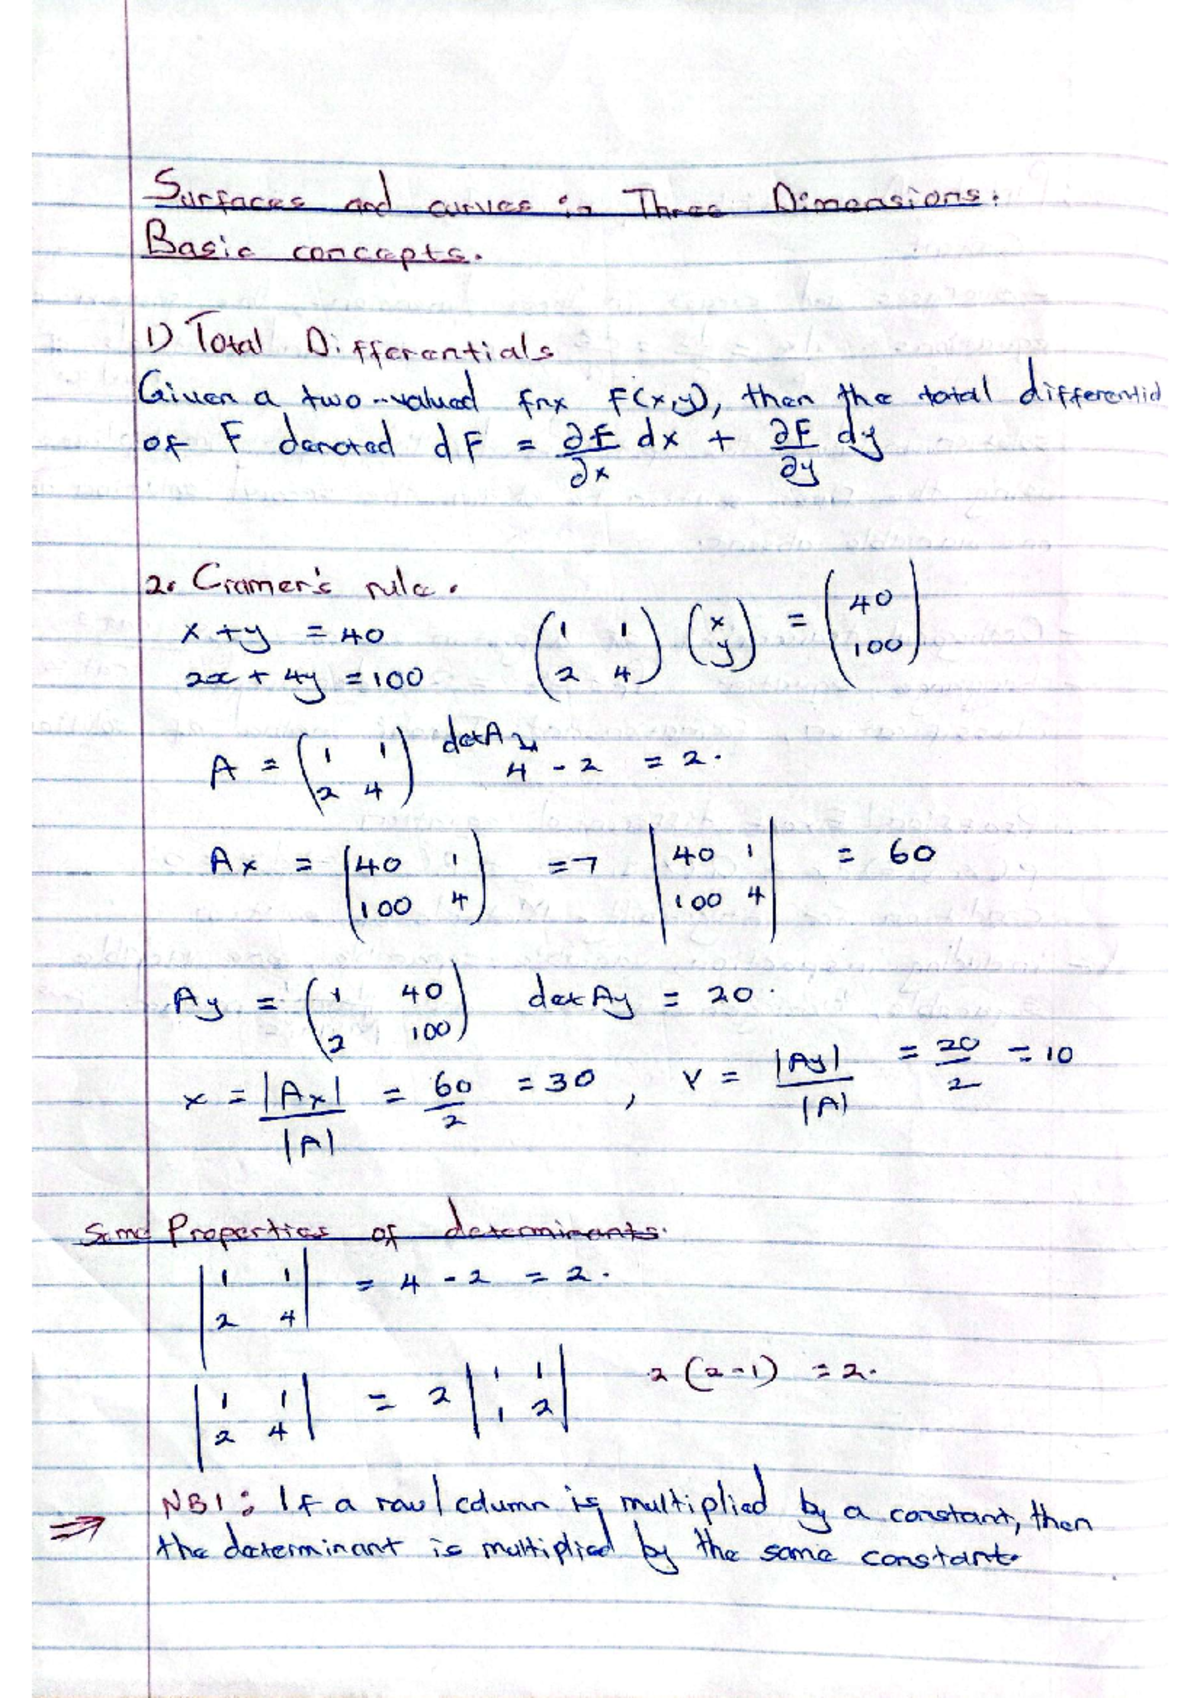 Surfaces and curves in Three Dimensions:
Basic concepts.
1) Total Differentials
Given a two-valued fnx F(x,y), then the total differential
of F denoted dF = ∂F/∂x dx + ∂F/∂y dy
2. Cramer's rule.
x + y = 40
2x + 4y = 100
(1 1; 2 4) (x; y) = (40; 100)
A = (1 1; 2 4) det A 4 - 2 = 2.
Ax = (40 1; 100 4) => |40 1; 100 4| = 60
Ay = (1 40; 2 100) det Ay = 20.
x = |Ax|/|A| = 60/2 = 30, Y = |Ay|/|A| = 20/2 = 10
Some Properties of determinants.
|1 1; 2 4| = 4 - 2 = 2.
|1 1; 2 4| = 2 |1 1; 1 2| 2(2-1) = 2.
⇒ NB1: If a row/column is multiplied by a constant, then
the determinant is multiplied by the same constant.